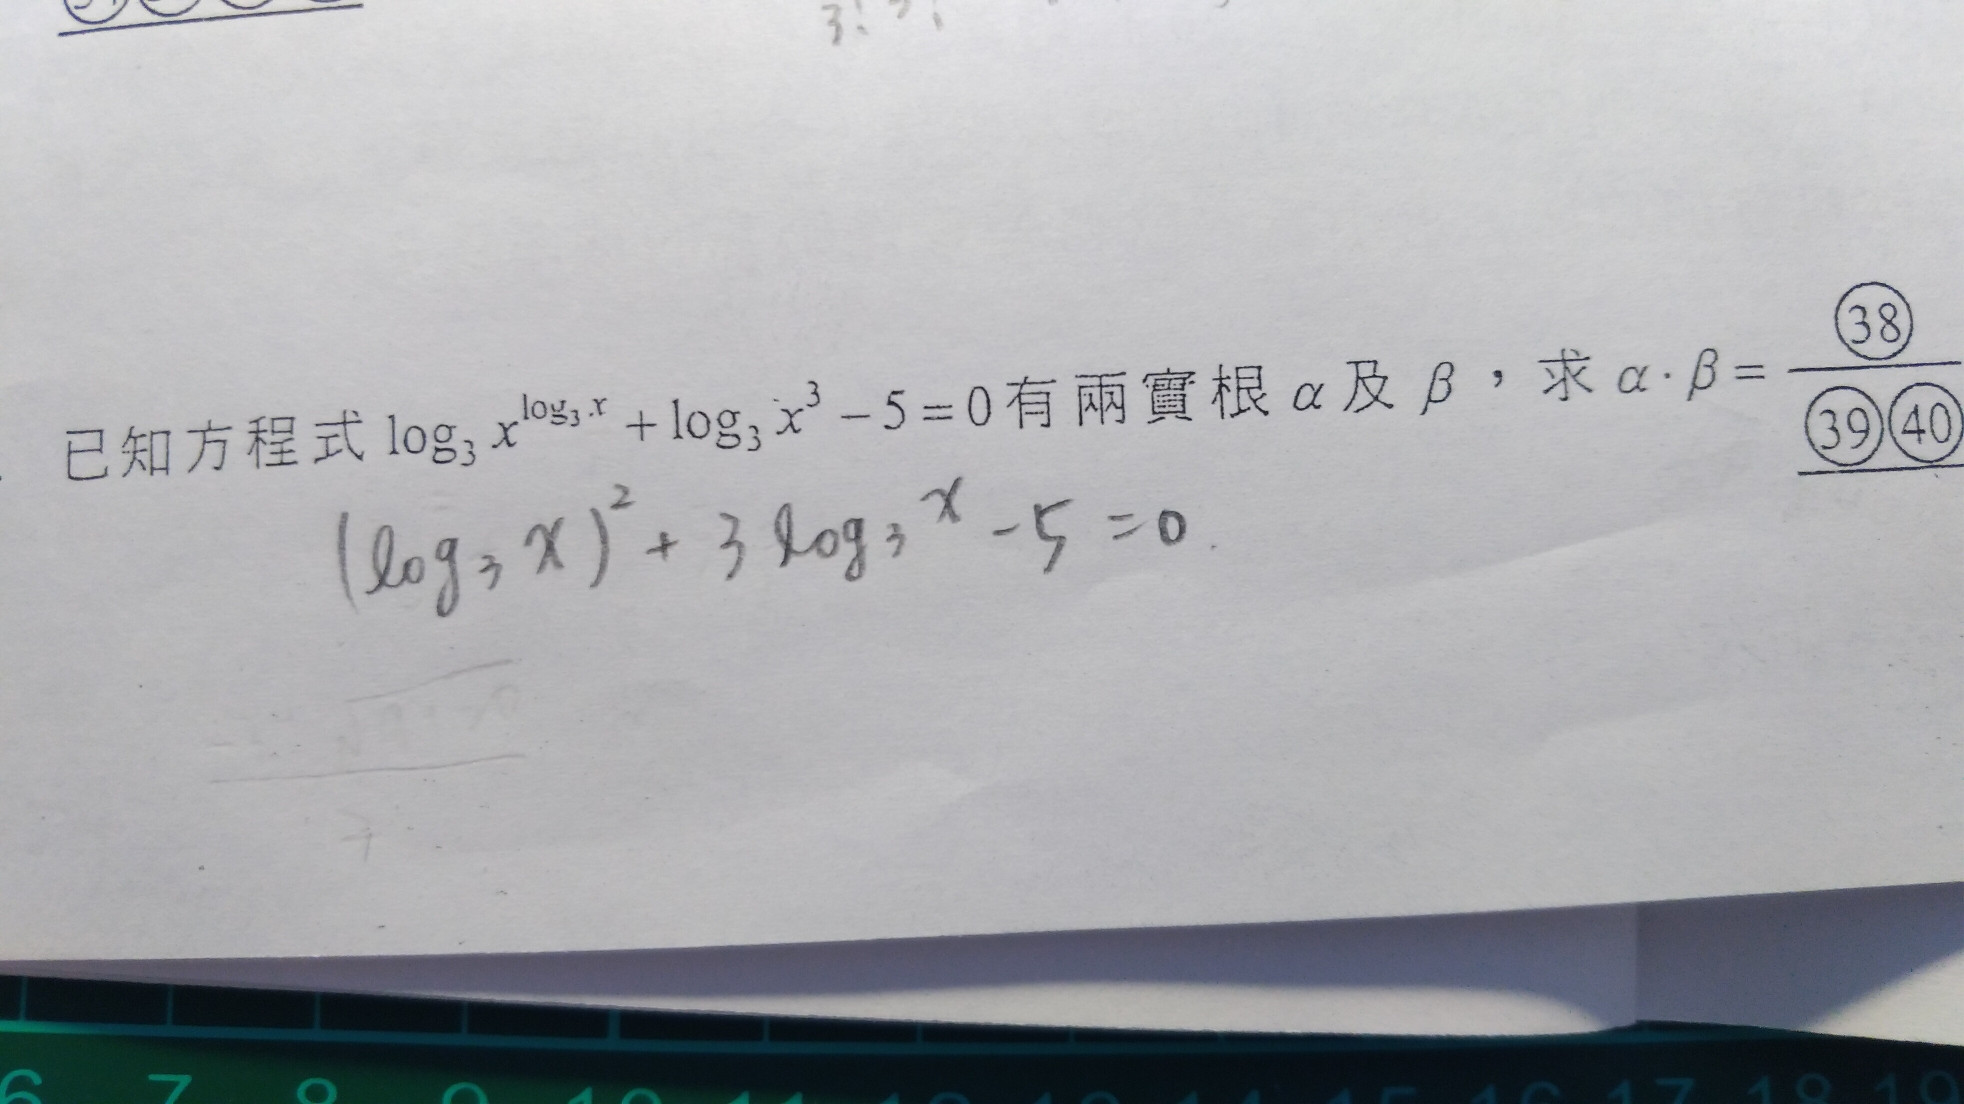 3! 3!
已知方程式 log₃ x^(log₃ x) + log₃ x³ − 5 = 0 有兩實根 α 及 β，求 α · β = ㊳/㊴㊵
(log₃ x)² + 3 log₃ x − 5 = 0.
6 7 8 9 10 11 12 13 14 15 16 17 18 19